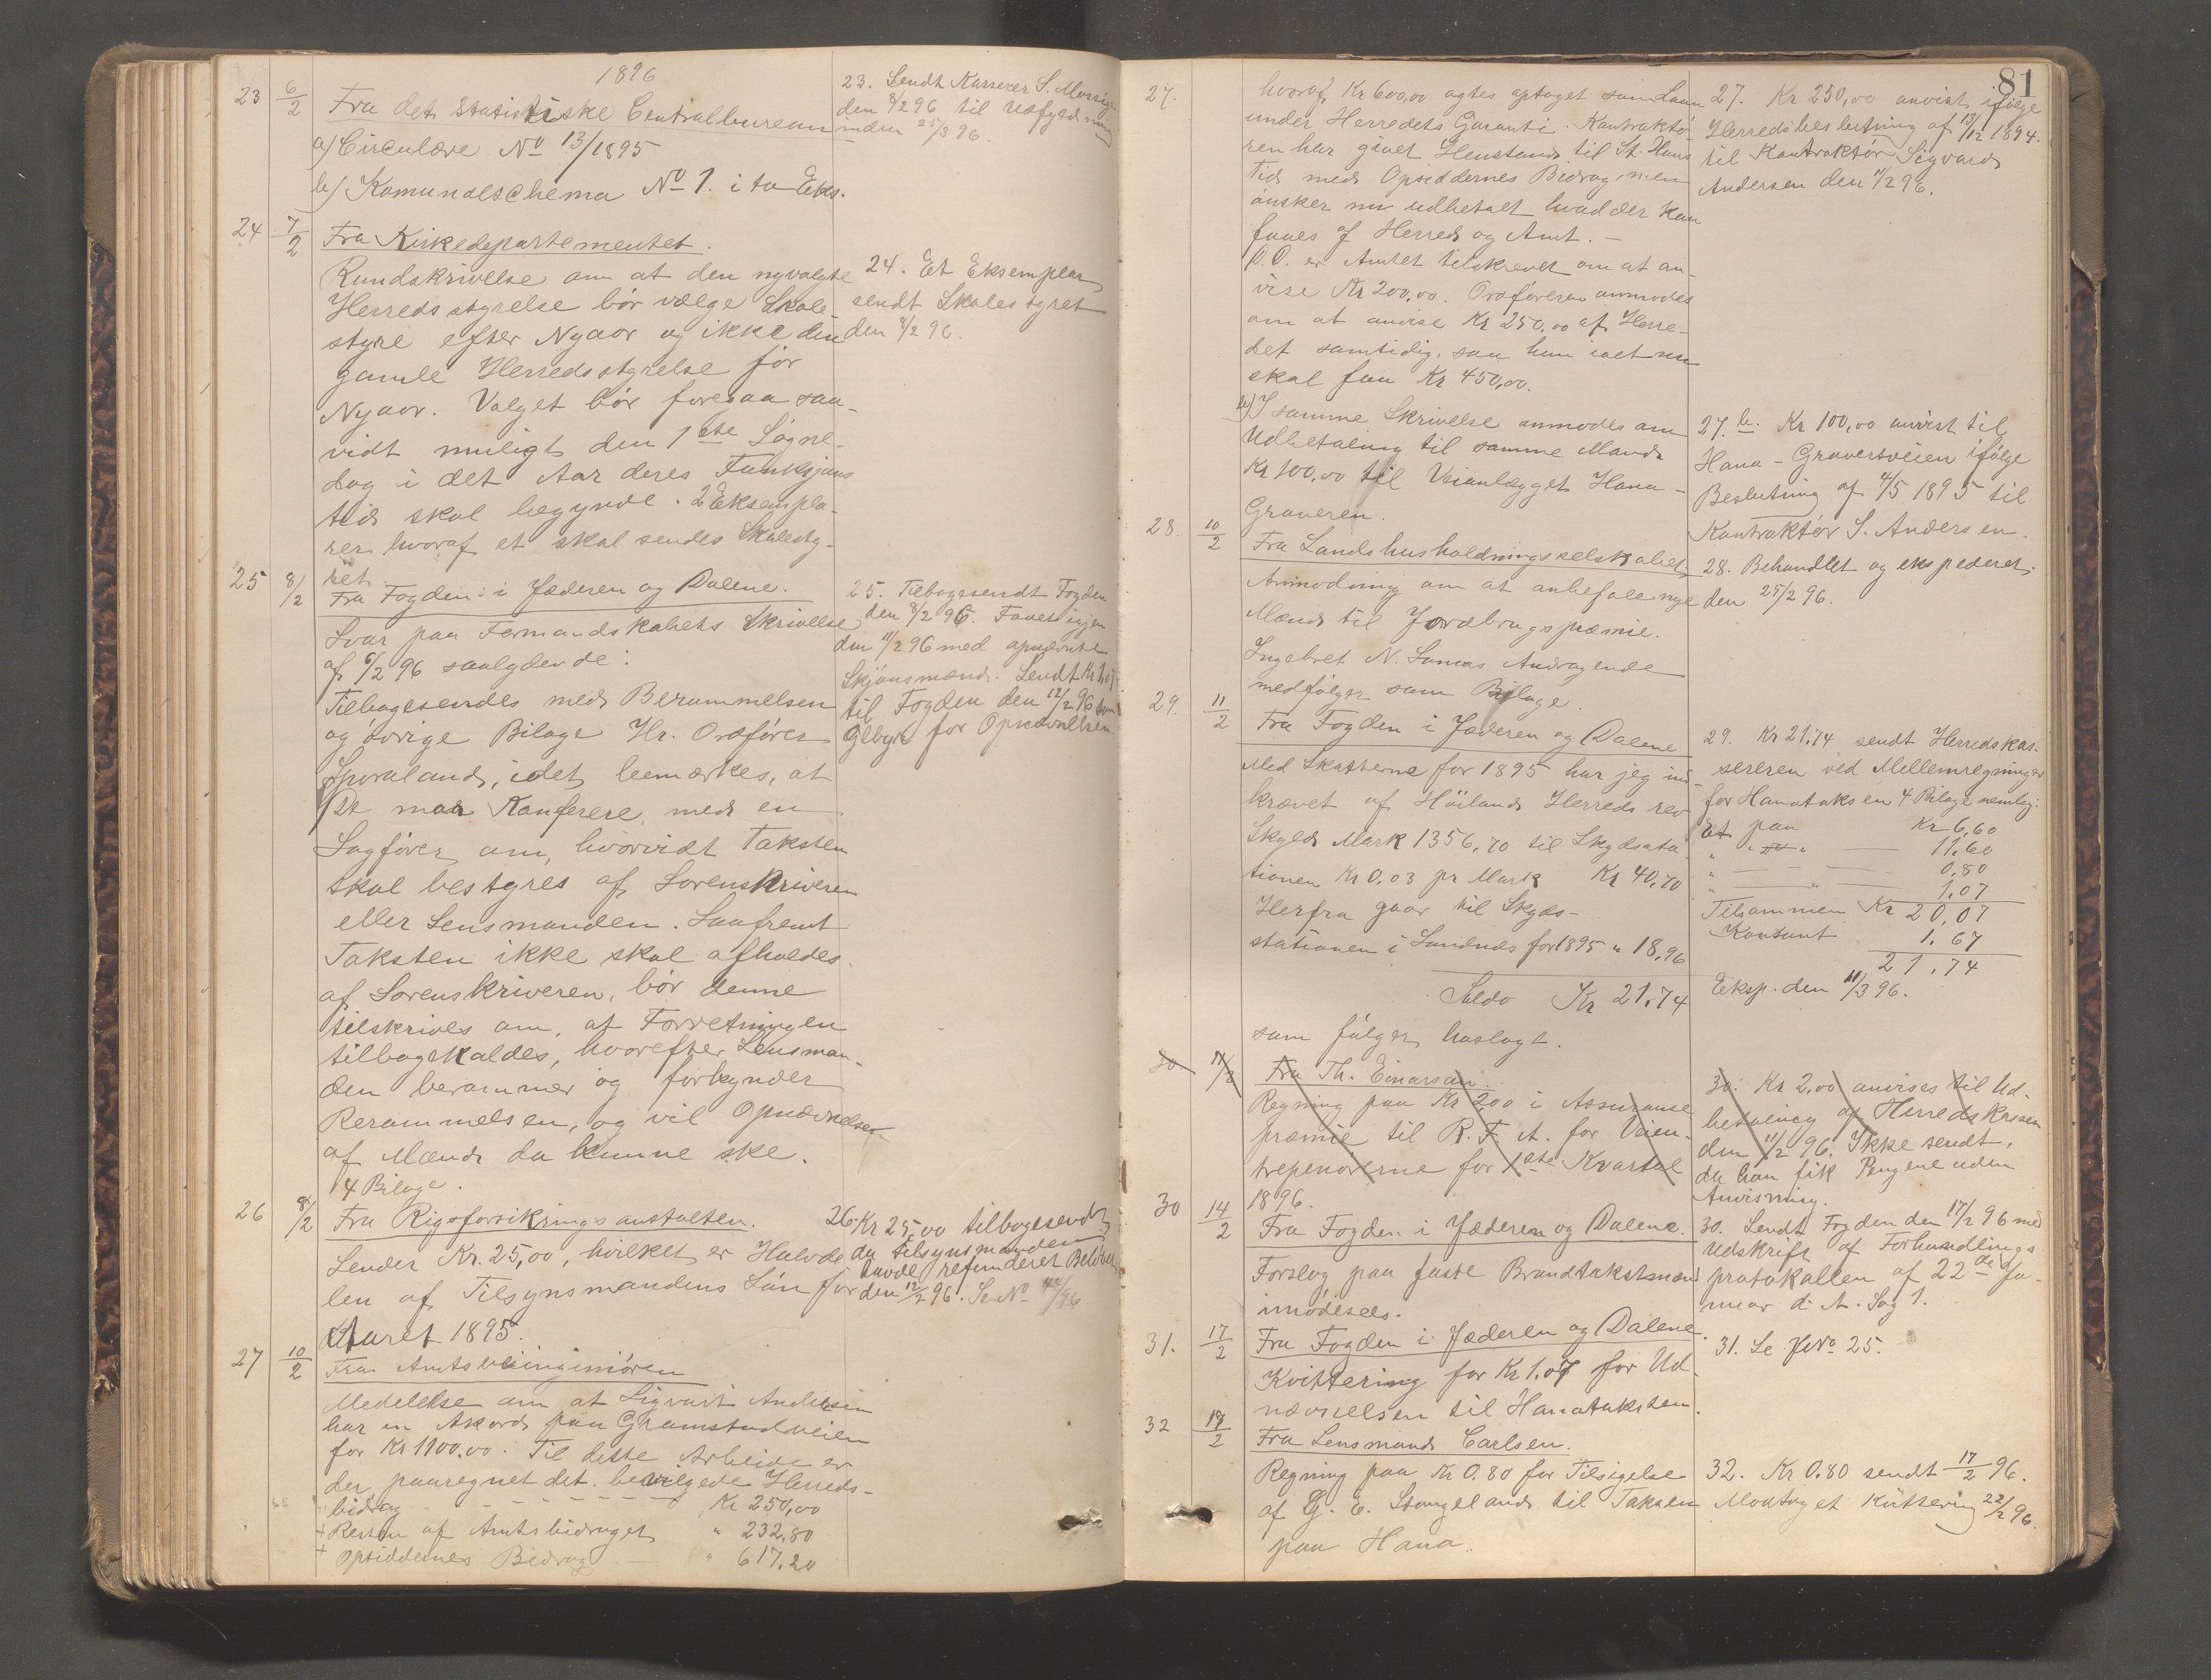 1896
23 6/2 Fra det Statistiske Centralbureau
a) Circulære No 13/1895
b) Komunalschema No 1. i to Eks.
23. Sendt Kasserer S. Mossige
den 8/2 96 til Udfyldning
inden 25/3 96.
24 7/2 Fra Kirkedepartementet.
Rundskrivelse om at den nyvalgte
Herredsstyrelse bør vælge Skole-
styre efter Nyaar og ikke den
gamle Herredsstyrelse før
Nyaar. Valget bør foregaa saa-
vidt muligt den 1ste Søgne-
dag i det Aar deres Funksjons
tid skal begynde. 2 Eksempla-
rer hvoraf et skal sendes Skolesty-
ret
24. Et Eksemplar
sendt Skolestyret
den 8/2 96.
25 8/2 Fra Fogden i Jæderen og Dalene.
Svar paa Formandskabets Skrivelse
af 6/2 96 saalydende:
Tilbagesendes med Berammelsen
og øvrige Bilage Hr. Ordfører
Sporaland, idet bemærkes, at
De maa Konferere med en
Sagfører om, hvorvidt Taksten
skal bestyres af Sorenskriveren
eller Lensmanden. Saafremt
Taksten ikke skal afholdes
af Sorenskriveren, bør denne
tilskrives om, at Forretningen
tilbagekaldes, hvorefter Lensman-
den berammer og forkynder
Berammelsen, og vil Opnævnelsen
af Mænd da kunne ske.
4 Bilage.
25. Tilbagesendt Fogden
den 8/2 96. Faaet igjen
den 11/2 96 med opnævnte
Skjønsmænd. Sendt Kr 1.07
til Fogden den 12/2 96 som
Gebyr for Opnævnelsen
26 8/2 Fra Rigsforsikringsanstalten.
Sender Kr. 25,00, hvilket er Halvde
len af Tilsynsmandens Løn for
Aaret 1895.
26. Kr 25,00 tilbagesendt
da tilsynsmanden
havde refunderet Beløbet
den 12/2 96. Se No 44/96
27 10/2 Fra Amtsveiingeniøren
Meddelelse om at Sigvart Andersen
har en Akord paa Gramstadveien
for Kr 1100,00. Til dette Arbeide er
der paaregnet det bevilgede Herreds-
bidrag - - - - - - Kr 250,00
+ Resten af Amtsbidraget " 232,80
+ Opsiddernes Bidrag — " 617,20
81
27. hvoraf Kr 600,00 agtes optaget som Laan
under Herredets Garanti. Kontraktø
ren har givet Henstand til St. Hans
Tid med Opsiddernes Bidrag, men
ønsker nu udbetalt hvad der kan
faaes af Herred og Amt. —
D. D. er Amtet tilskrevet om at an-
vise Kr 200,00. Ordføreren anmodes
om at anvise Kr 250,00 af Herre-
det samtidig, saa han ialt nu
skal faa Kr 450,00.
b) I samme Skrivelse anmodes om
Udbetaling til samme Mand
Kr 100,00 til Veianlægget Hana-
Graveren.
27. Kr 250,00 anvist ifølge
Herredsbeslutning af 13/12 1894.
til Kontraktør Sigvard
Andersen den 11/2 96.
27. b. Kr 100,00 anvist til
Hana-Graversveien ifølge
Beslutning af 4/5 1895 til
Kontraktør S. Andersen.
28. 10/2 Fra Landshusholdningsselskabet
Anmodning om at anbefale nye
Mænd til Jordbrugspræmie.
Ingebret N. Somas Andragende
medfølger som Bilage.
28. Behandlet og ekspederet
den 25/2 96.
29. 11/2 Fra Fogden i Jæderen og Dalene
Med Skatterne for 1895 har jeg ind
krævet af Høilands Herreds rev
Skyld Mark 1356,70 til Skydssta
tionen Kr 0,03 pr Mark Kr 40,70
Herfra gaar til Skyds-
stationen i Sandnes for 1895 " 18,96
Saldo Kr 21,74
som følger hoslagt.
29. Kr 21,74 sendt Herredskas-
sereren ved Mellemregninger
for Hanataksten 4 Bilage nemlig:
Et paa Kr 6,60
" " " — 11,60
" — — 0,80
" — " — 1,07
Tilsammen Kr 20,07
Kontant 1.67
21,74
Eksp. den 11/3 96.
30 11/2 Fra Th. Einarsan.
Regning paa Kr 2,00 i Assurance
præmie til R. F. A. for Veien-
trepenørerne for 1ste Kvartal
1896.
30. Kr 2,00 anvises til Ud-
betaling af Herredskassen
den 11/2 96. Ikke sendt,
da han fik Pengene uden
Anvisning.
30 14/2 Fra Fogden i Jæderen og Dalene.
Forslag paa faste Brandtakstmænd
imødesees.
30. Sendt Fogden den 17/2 96 med
Udskrift af Forhandlings
protokollen af 22de Ja-
nuar d. A. Sag 1.
31. 17/2 Fra Fogden i Jæderen og Dalene.
Kvittering for Kr 1.07 for Ud-
nævnelsen til Hanataksten.
31. Se JNo. 25.
32 19/2 Fra Lensmand Carlsen.
Regning paa Kr 0.80 for Tilsigelse
af G. E. Stangeland til Taksten
paa Hana.
32. Kr 0.80 sendt 17/2 96.
Modtaget Kvittering 22/2 96.